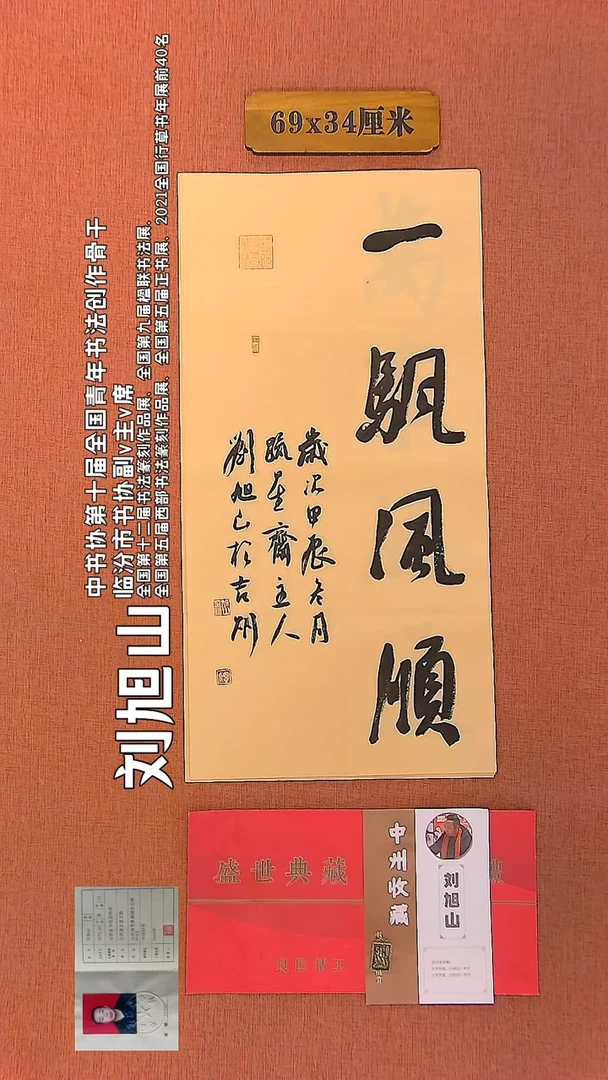 69x34厘米
一
帆
风
順
歲次甲辰冬月
齋主人
劉旭山於吉州
刘旭山
中书协第十届全国青年书法创作骨干
临汾市书协副v主v席
全国第十二届书法篆刻作品展、全国第九届楹联书法展、
全国第五届西部书法篆刻作品展、全国第五届正书展、2021全国行草书年展前40名
盛世典藏
中州收藏
刘旭山